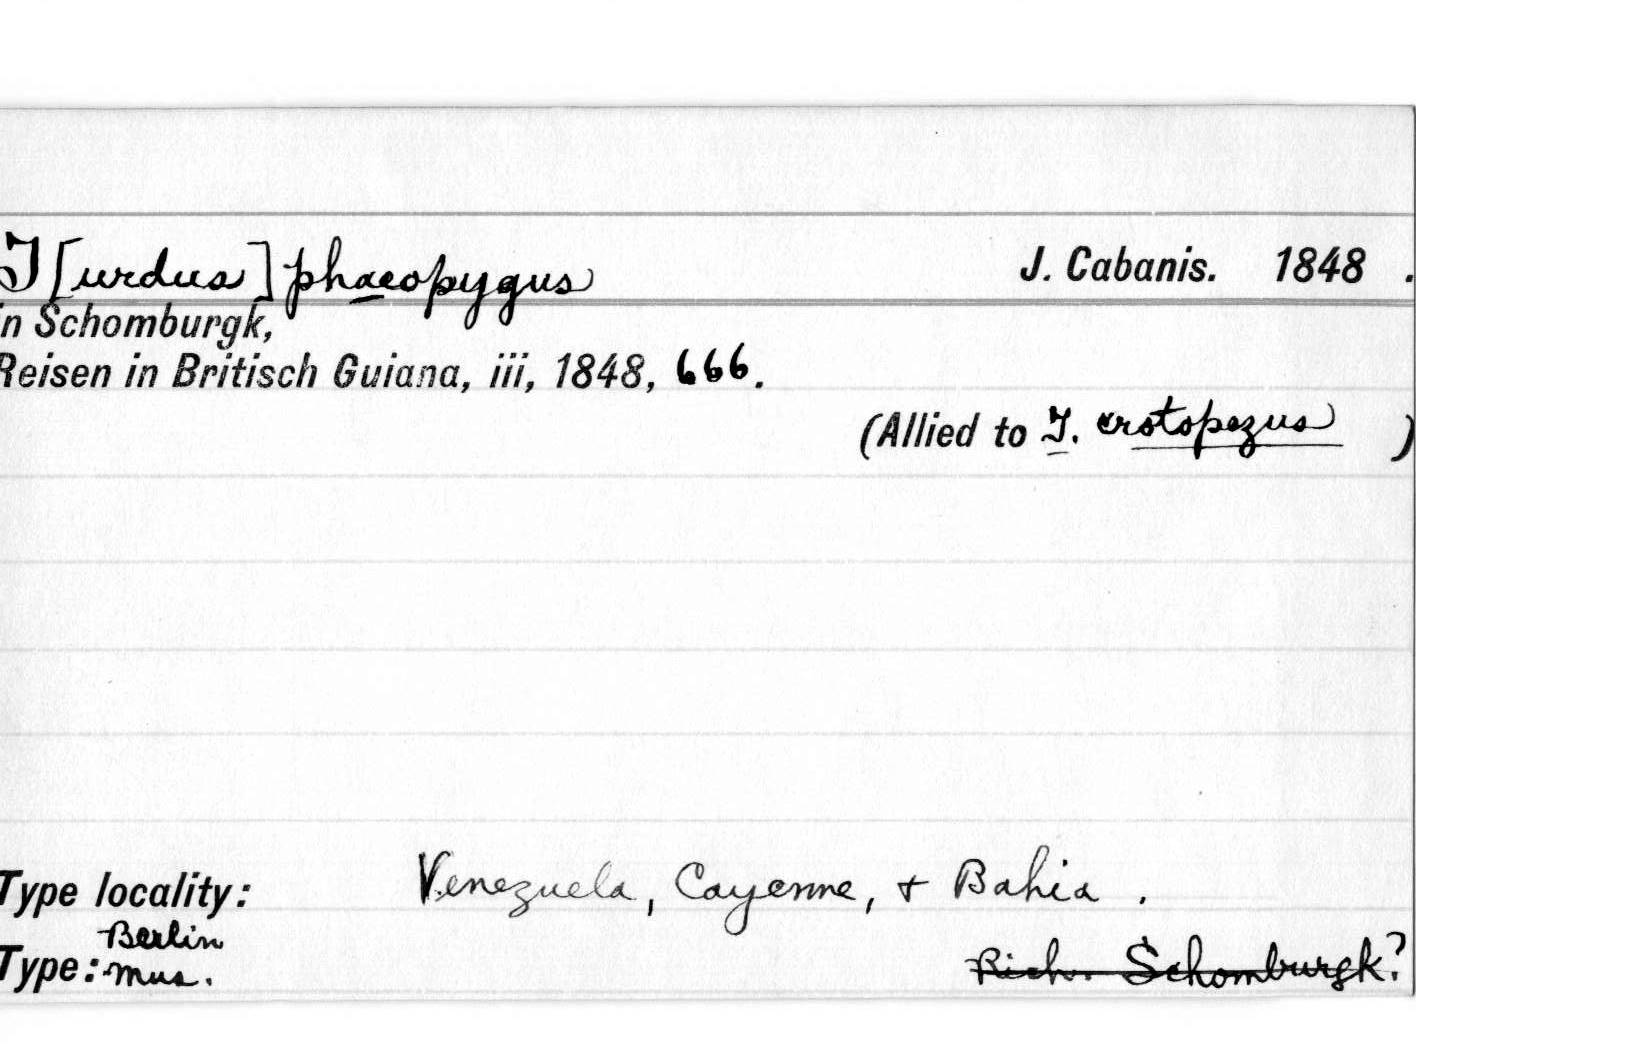 T[urdus] phaeopygus J. Cabanis. 1848 .
in Schomburgk,
Reisen in Britisch Guiana, iii, 1848, 666.
(Allied to T. crotopezus )
Type locality: Venezuela, Cayenne, + Bahia .
Berlin
Type: Mus. Rich. Schomburgk?